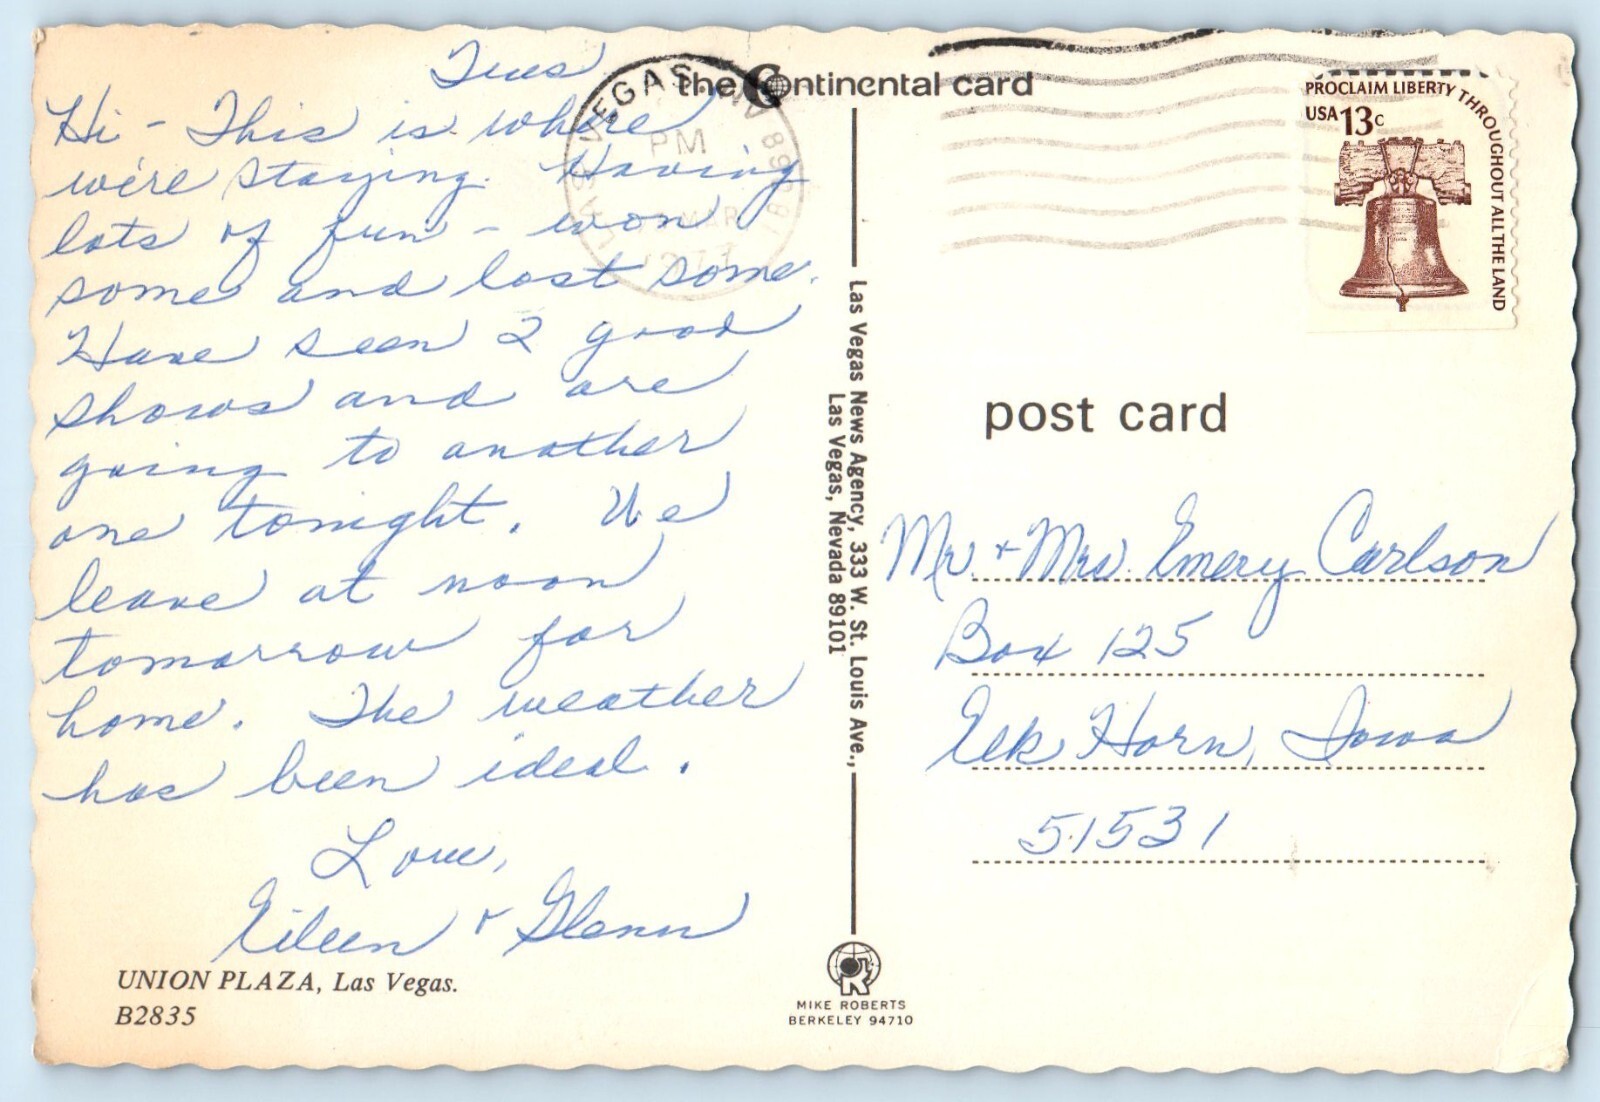 Tues
Hi - This is where
we're staying. Having
lots of fun - won
some and lost some.
Have seen 2 good
shows and are
going to another
one tonight. We
leave at noon
tomorrow for
home. The weather
has been ideal.
Love,
Eileen + Glenn
UNION PLAZA, Las Vegas.
B2835
the Continental card
LAS VEGAS, NV 891
PM
MAR
1977
Las Vegas News Agency, 333 W. St. Louis Ave.,
Las Vegas, Nevada 89101
MIKE ROBERTS
BERKELEY 94710
PROCLAIM LIBERTY THROUGHOUT ALL THE LAND
USA 13c
post card
Mr + Mrs. Emery Carlson
Box 125
Elk Horn, Iowa
51531